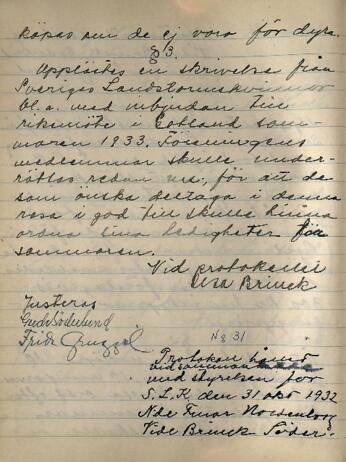 köpas om de ej voro för dyra.
§ 3.
Upplästes en skrivelse från
Sveriges Landstormskvinnor
bl. a. med inbjudan till
riksmöte i Gotland som-
maren 1933. Föreningens
medlemmar skulle under-
rättas redan nu, för att de
som önska deltaga i denna
resa i god till skulle hinna
ordna sina ledigheter för
sommaren.
Vid protokollet
Elsa Brinck
Justeras
Söderlund
Frida
No 31
Protokoll
vid sammanträde
med styrelsen för
S. L. K. den 31 okt 1932
Närv. Fruar
Brinck Söder-